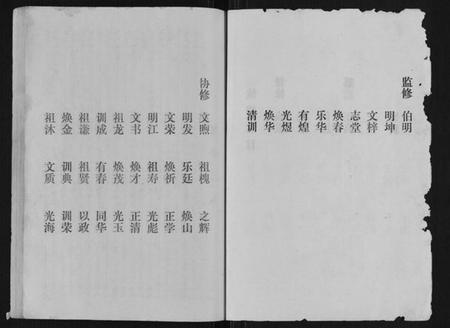 监修
伯明
明坤
文梓
志堂
焕春
乐华
有煌
光煜
焕华
清训
协修
文煦 祖槐 之辉
明发 乐廷 焕山
文荣 焕祈 正学
明江 祖寿 光彪
文书 焕才 正清
祖龙 焕茂 光玉
训成 有春 同华
祖谦 祖贤 以政
焕金 训典 训荣
祖沐 文质 光海